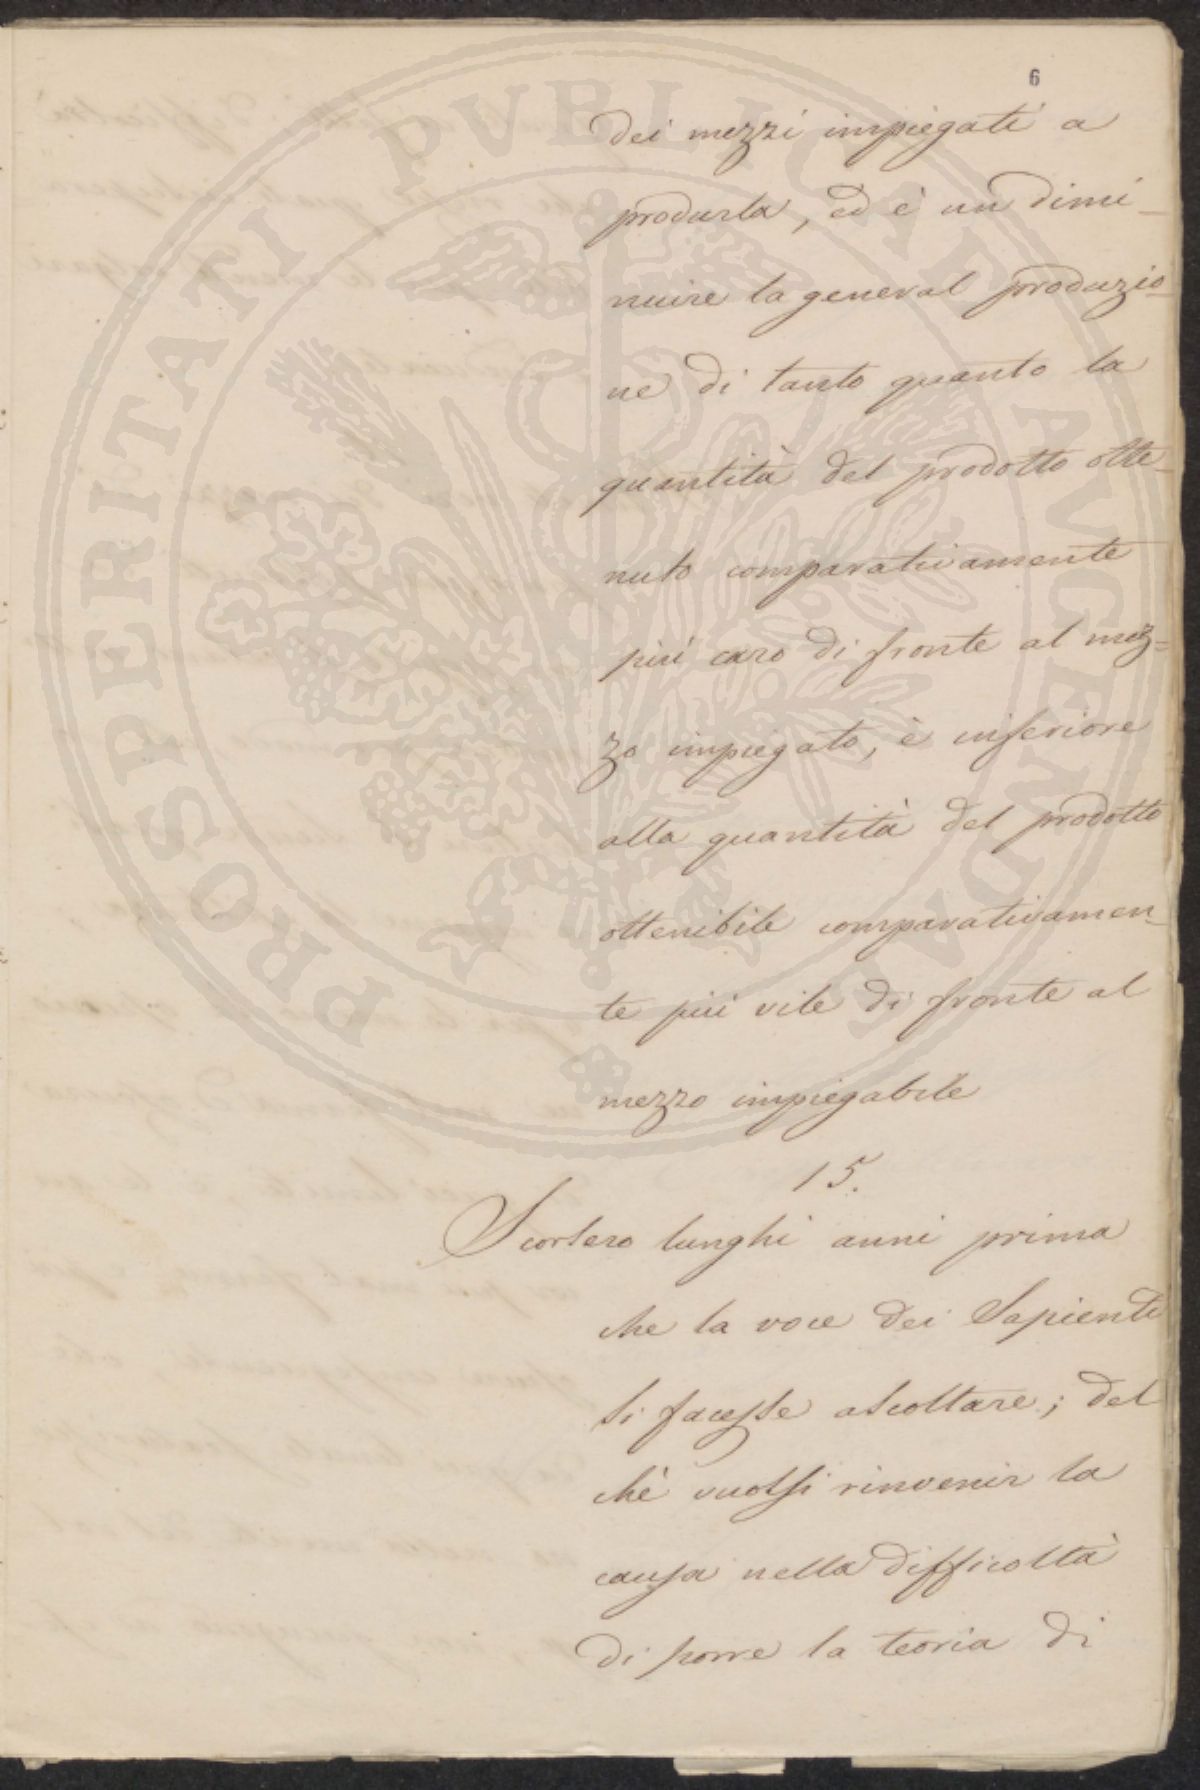 6
dei mezzi impiegati a
produrla, ed è un dimi_
nuire la general produzio_
ne di tanto quanto la
quantità del prodotto otte_
nuto comparativamente
più caro di fronte al mez=
zo impiegato, è inferiore
alla quantità del prodotto
ottenibile comparativamen_
te più vile di fronte al
mezzo impiegabile
15.
Scorsero lunghi anni prima
che la voce dei Sapienti
si facesse ascoltare; del
chè vuolsi rinvenir la
causa nella difficoltà
di porre la teoria di
PROSPERITATI PVBLICAE AVGENDAE